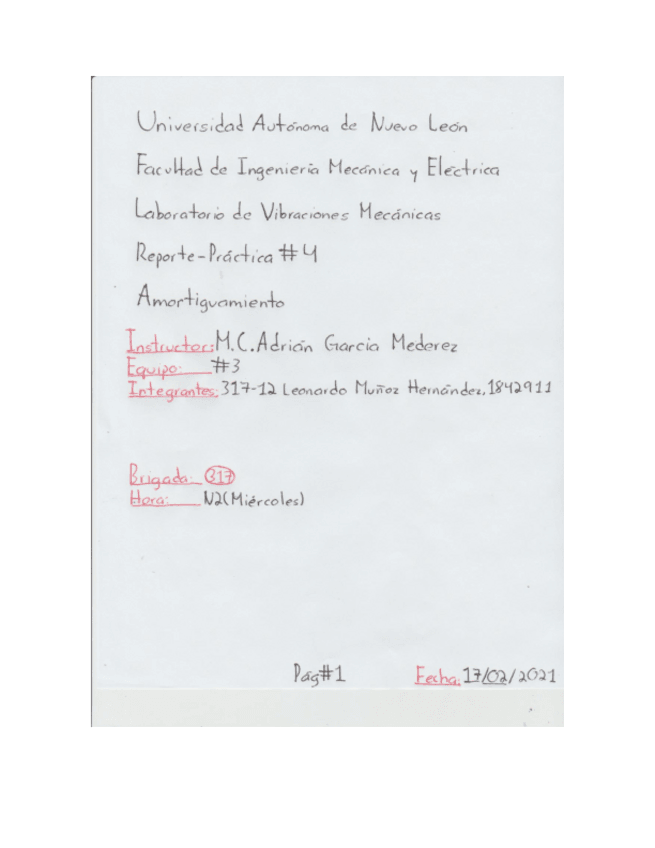 Universidad Autónoma de Nuevo León
Facultad de Ingeniería Mecánica y Eléctrica
Laboratorio de Vibraciones Mecánicas
Reporte-Práctica #4
Amortiguamiento
Instructor: M.C. Adrián García Mederez
Equipo: #3
Integrantes: 317-12 Leonardo Muñoz Hernández, 1842911
Brigada: 317
Hora: N2(Miércoles)
Pág#1 Fecha: 17/02/2021